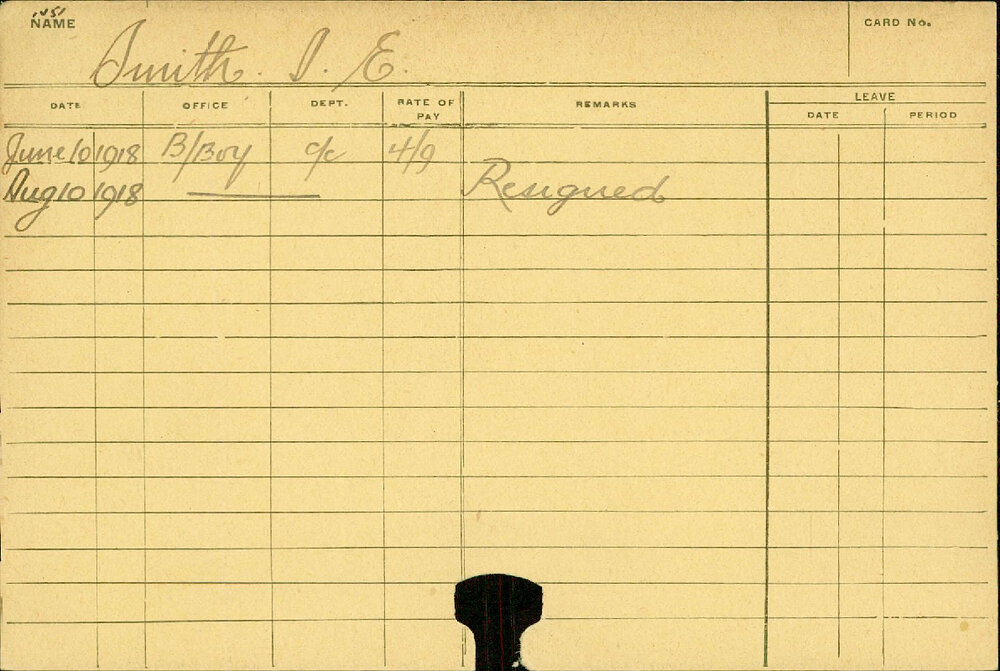 NAME
CARD No.
Smith. S. E.
DATE OFFICE DEPT. RATE OF PAY REMARKS LEAVE
DATE PERIOD
June 10 1918 B/Boy c/c 4/9
Aug 10 1918 Resigned